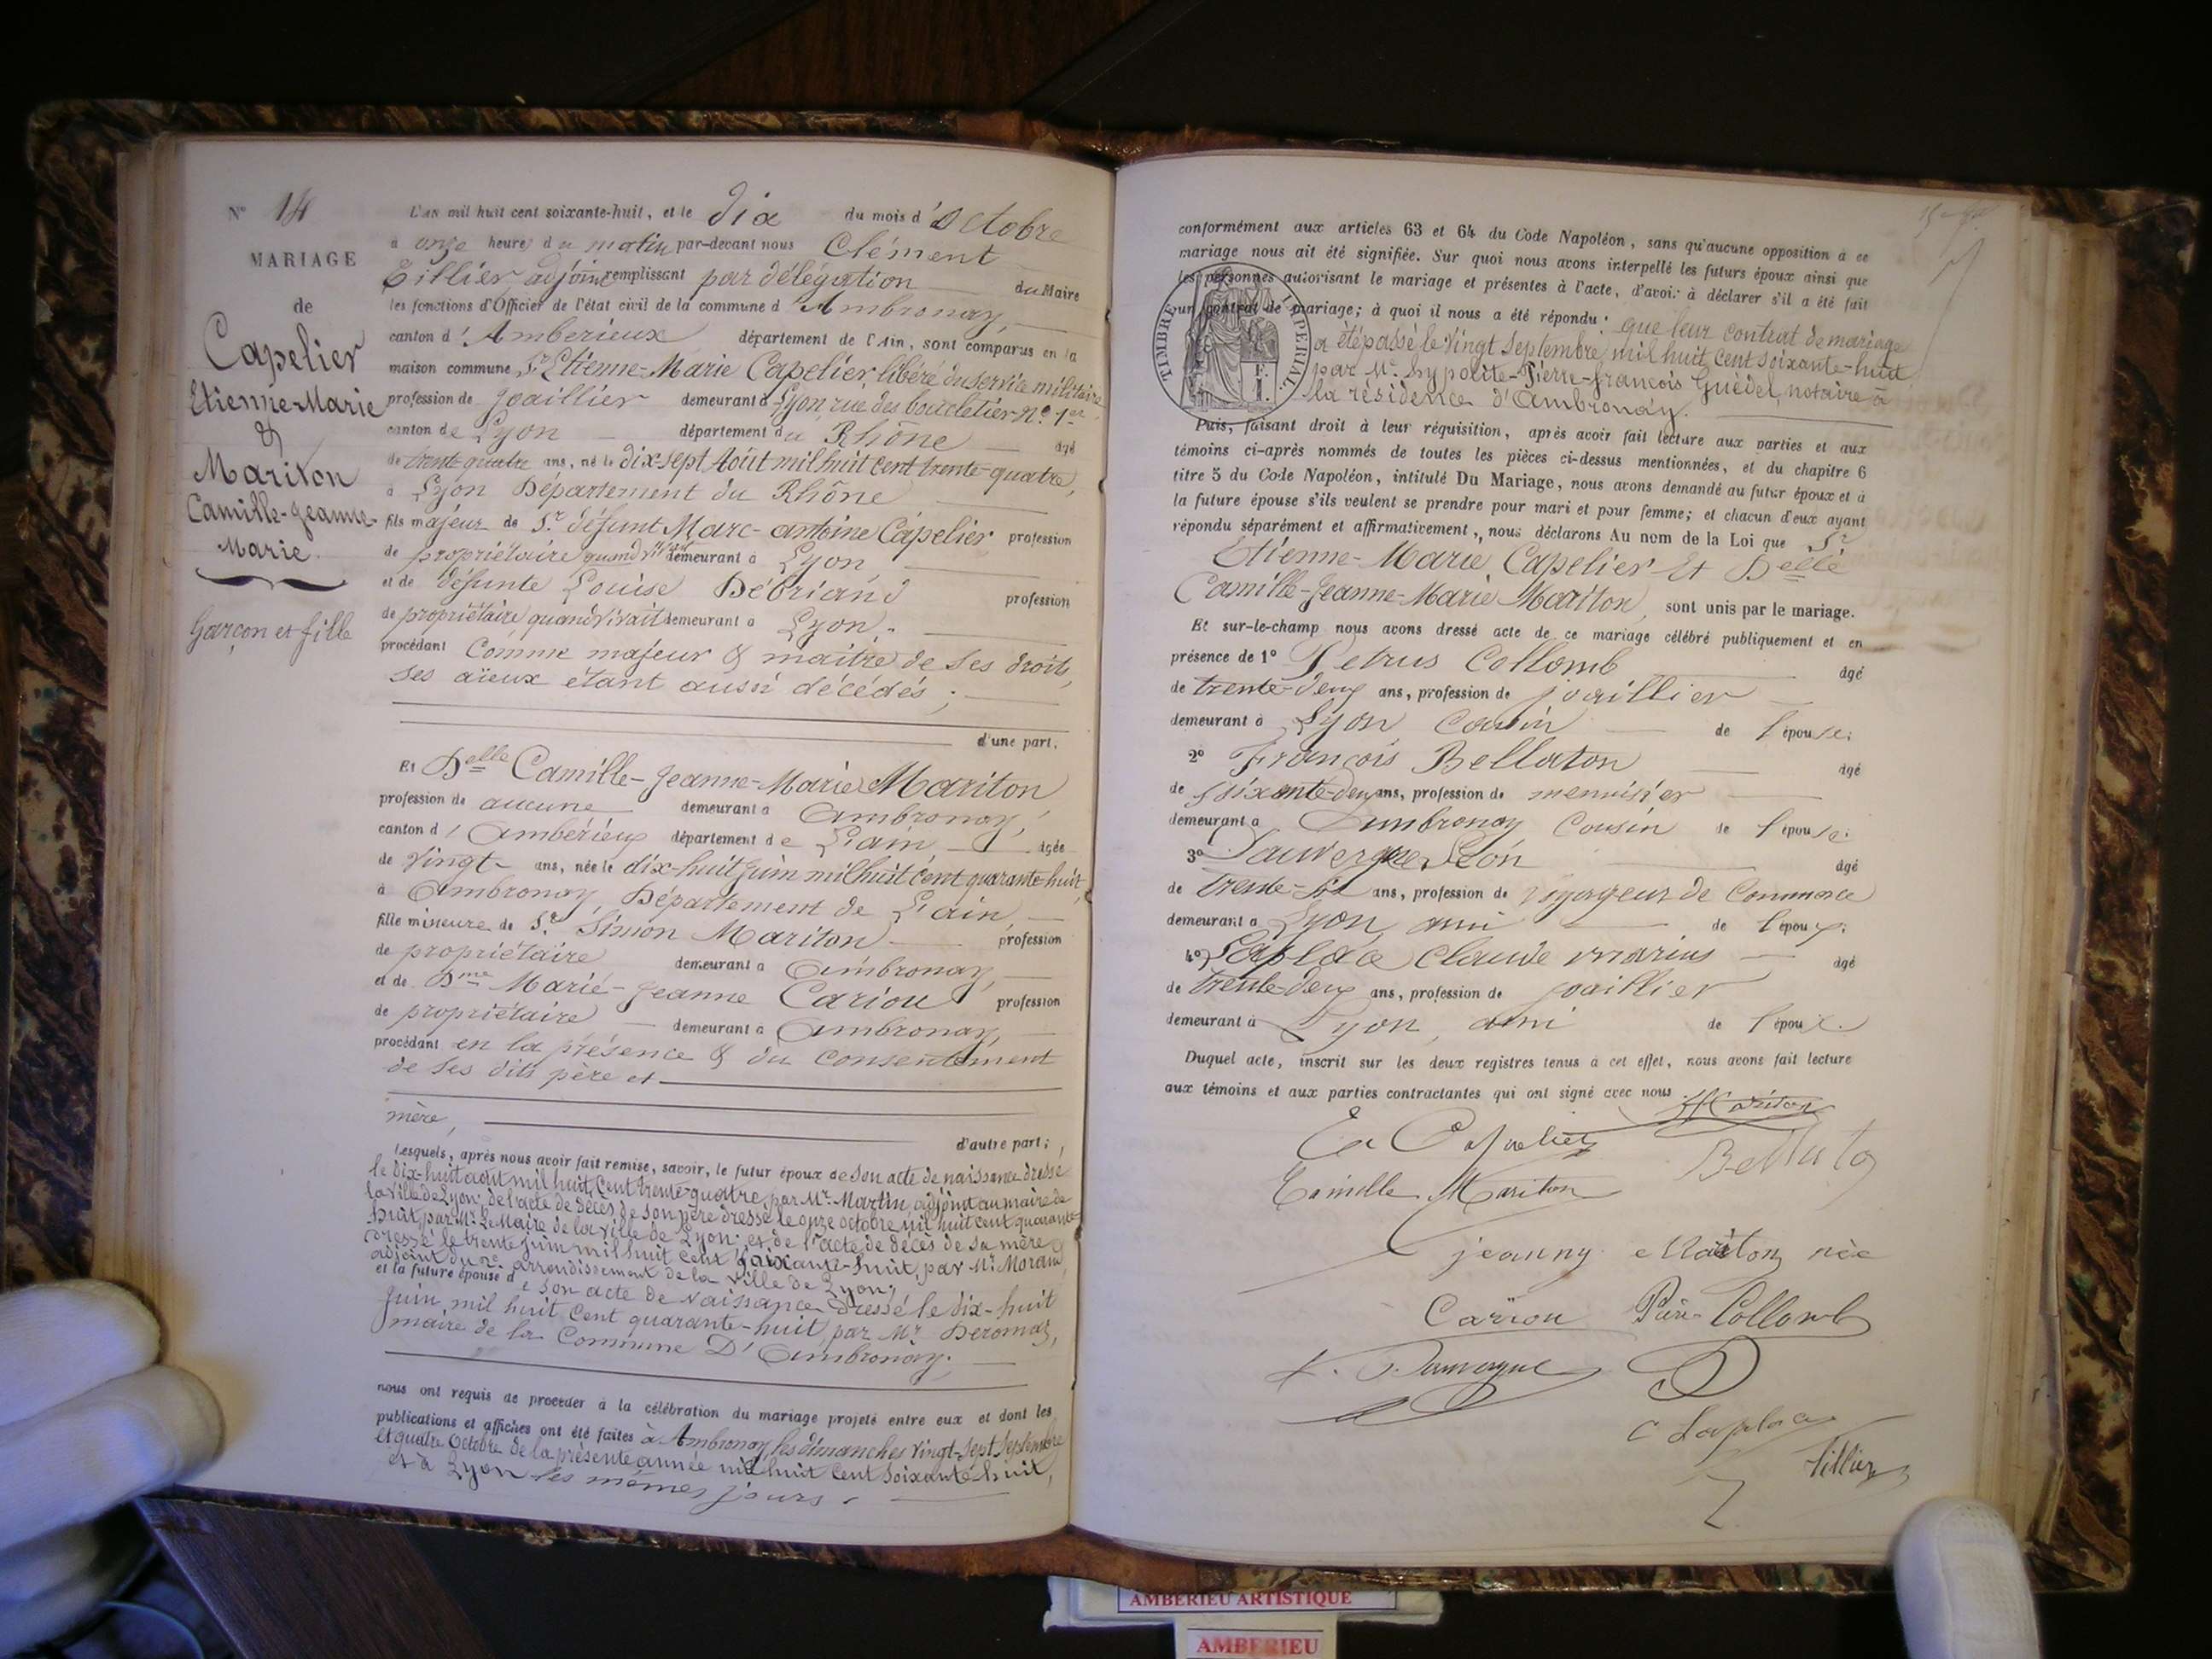 Nº 14
MARIAGE
de
Capelier
Etienne-Marie
&
Mariton
Camille-Jeanne-
Marie.
Garçon et fille
L'an mil huit cent soixante-huit, et le dix du mois d'Octobre
à onze heures du matin par-devant nous Clément
Tillier, adjoint remplissant par délégation du Maire
les fonctions d'Officier de l'état civil de la commune d'Ambronay,
canton d'Ambérieux département de l'Ain, sont comparus en la
maison commune Sr. Etienne-Marie Capelier, libéré du service militaire,
profession de joaillier demeurant à Lyon, rue des bouceletier nº 1er
canton de Lyon département du Rhône âgé
de trente-quatre ans, né le dix-sept Août mil huit cent trente-quatre,
à Lyon Département du Rhône
fils majeur de Sr. défunt Marc-antoine Capelier profession
de propriétaire quand vivait demeurant à Lyon
et de défunte Louise Débriand profession
de propriétaire quand vivait demeurant à Lyon.
procédant comme majeur & maître de ses droits,
ses aïeux étant aussi décédés ;
d'une part.
Et Delle Camille-Jeanne-Marie Mariton
profession de aucune demeurant à Ambronay,
canton d'Ambérieux département de L'ain âgée
de vingt ans, née le dix-huit Juin mil huit cent quarante-huit,
à Ambronay, Département de L'ain,
fille mineure de Sr. Simon Mariton profession
de propriétaire demeurant à Ambronay,
et de Dme Marie-Jeanne Cariou profession
de propriétaire demeurant à Ambronay,
procédant en la présence & du consentement
de ses dits père et
mère,
d'autre part ;
Lesquels, après nous avoir fait remise, savoir, le futur époux de son acte de naissance dressé
le dix-huit août mil huit cent trente-quatre par Mr. Martin, adjoint au maire de
la ville de Lyon; de l'acte de décès de son père dressé le onze octobre mil huit cent quarante-
huit par Mr. Le Maire de la ville de Lyon; et de l'acte de décès de sa mère
dressé le trente juin mil huit cent soixante-huit, par Mr. Morand,
adjoint du 2e arrondissement de la ville de Lyon;
et la future épouse de son acte de naissance dressé le dix-huit
Juin mil huit cent quarante-huit par Mr. Deromas,
maire de la Commune D'Ambronay.
nous ont requis de procéder à la célébration du mariage projeté entre eux et dont les
publications et affiches ont été faites à Ambronay les dimanches vingt-sept Septembre
et quatre Octobre de la présente année mil huit cent soixante-huit,
et à Lyon les mêmes jours.
conformément aux articles 63 et 64 du Code Napoléon, sans qu'aucune opposition à ce
mariage nous ait été signifiée. Sur quoi nous avons interpellé les futurs époux ainsi que
les personnes autorisant le mariage et présentes à l'acte, d'avoir à déclarer s'il a été fait
un contrat de mariage; à quoi il nous a été répondu : que leur contrat de mariage
a été passé le vingt Septembre mil huit cent soixante-huit
par Mr. hypolite-Pierre-françois Guédel, notaire à
la résidence d'Ambronay.
TIMBRE IMPÉRIAL
Puis, faisant droit à leur réquisition, après avoir fait lecture aux parties et aux
témoins ci-après nommés de toutes les pièces ci-dessus mentionnées, et du chapitre 6
titre 5 du Code Napoléon, intitulé Du Mariage, nous avons demandé au futur époux et à
la future épouse s'ils veulent se prendre pour mari et pour femme; et chacun d'eux ayant
répondu séparément et affirmativement, nous déclarons Au nom de la Loi que Sr
Etienne-Marie Capelier Et Delle
Camille-Jeanne-Marie Mariton, sont unis par le mariage.
Et sur-le-champ nous avons dressé acte de ce mariage célébré publiquement et en
présence de 1º Petrus Collomb âgé
de trente-deux ans, profession de joaillier
demeurant à Lyon cousin de l'épouse;
2º François Bellaton âgé
de soixante-deux ans, profession de menuisier
demeurant à Ambronay cousin de l'épouse;
3º Dauvergne Léon âgé
de trente-six ans, profession de voyageur de commerce
demeurant à Lyon, ami de l'époux;
4º Laplace Claude marius âgé
de trente-deux ans, profession de joaillier
demeurant à Lyon ami de l'époux.
Duquel acte, inscrit sur les deux registres tenus à cet effet, nous avons fait lecture
aux témoins et aux parties contractantes qui ont signé avec nous. Mariton
Capelier
Bellato
Camille Mariton
jeanny Mariton née
Cariou Collomb
Dauvergne
C Laplace
Tillier
AMBERIEU ARTISTIQUE
AMBERIEU